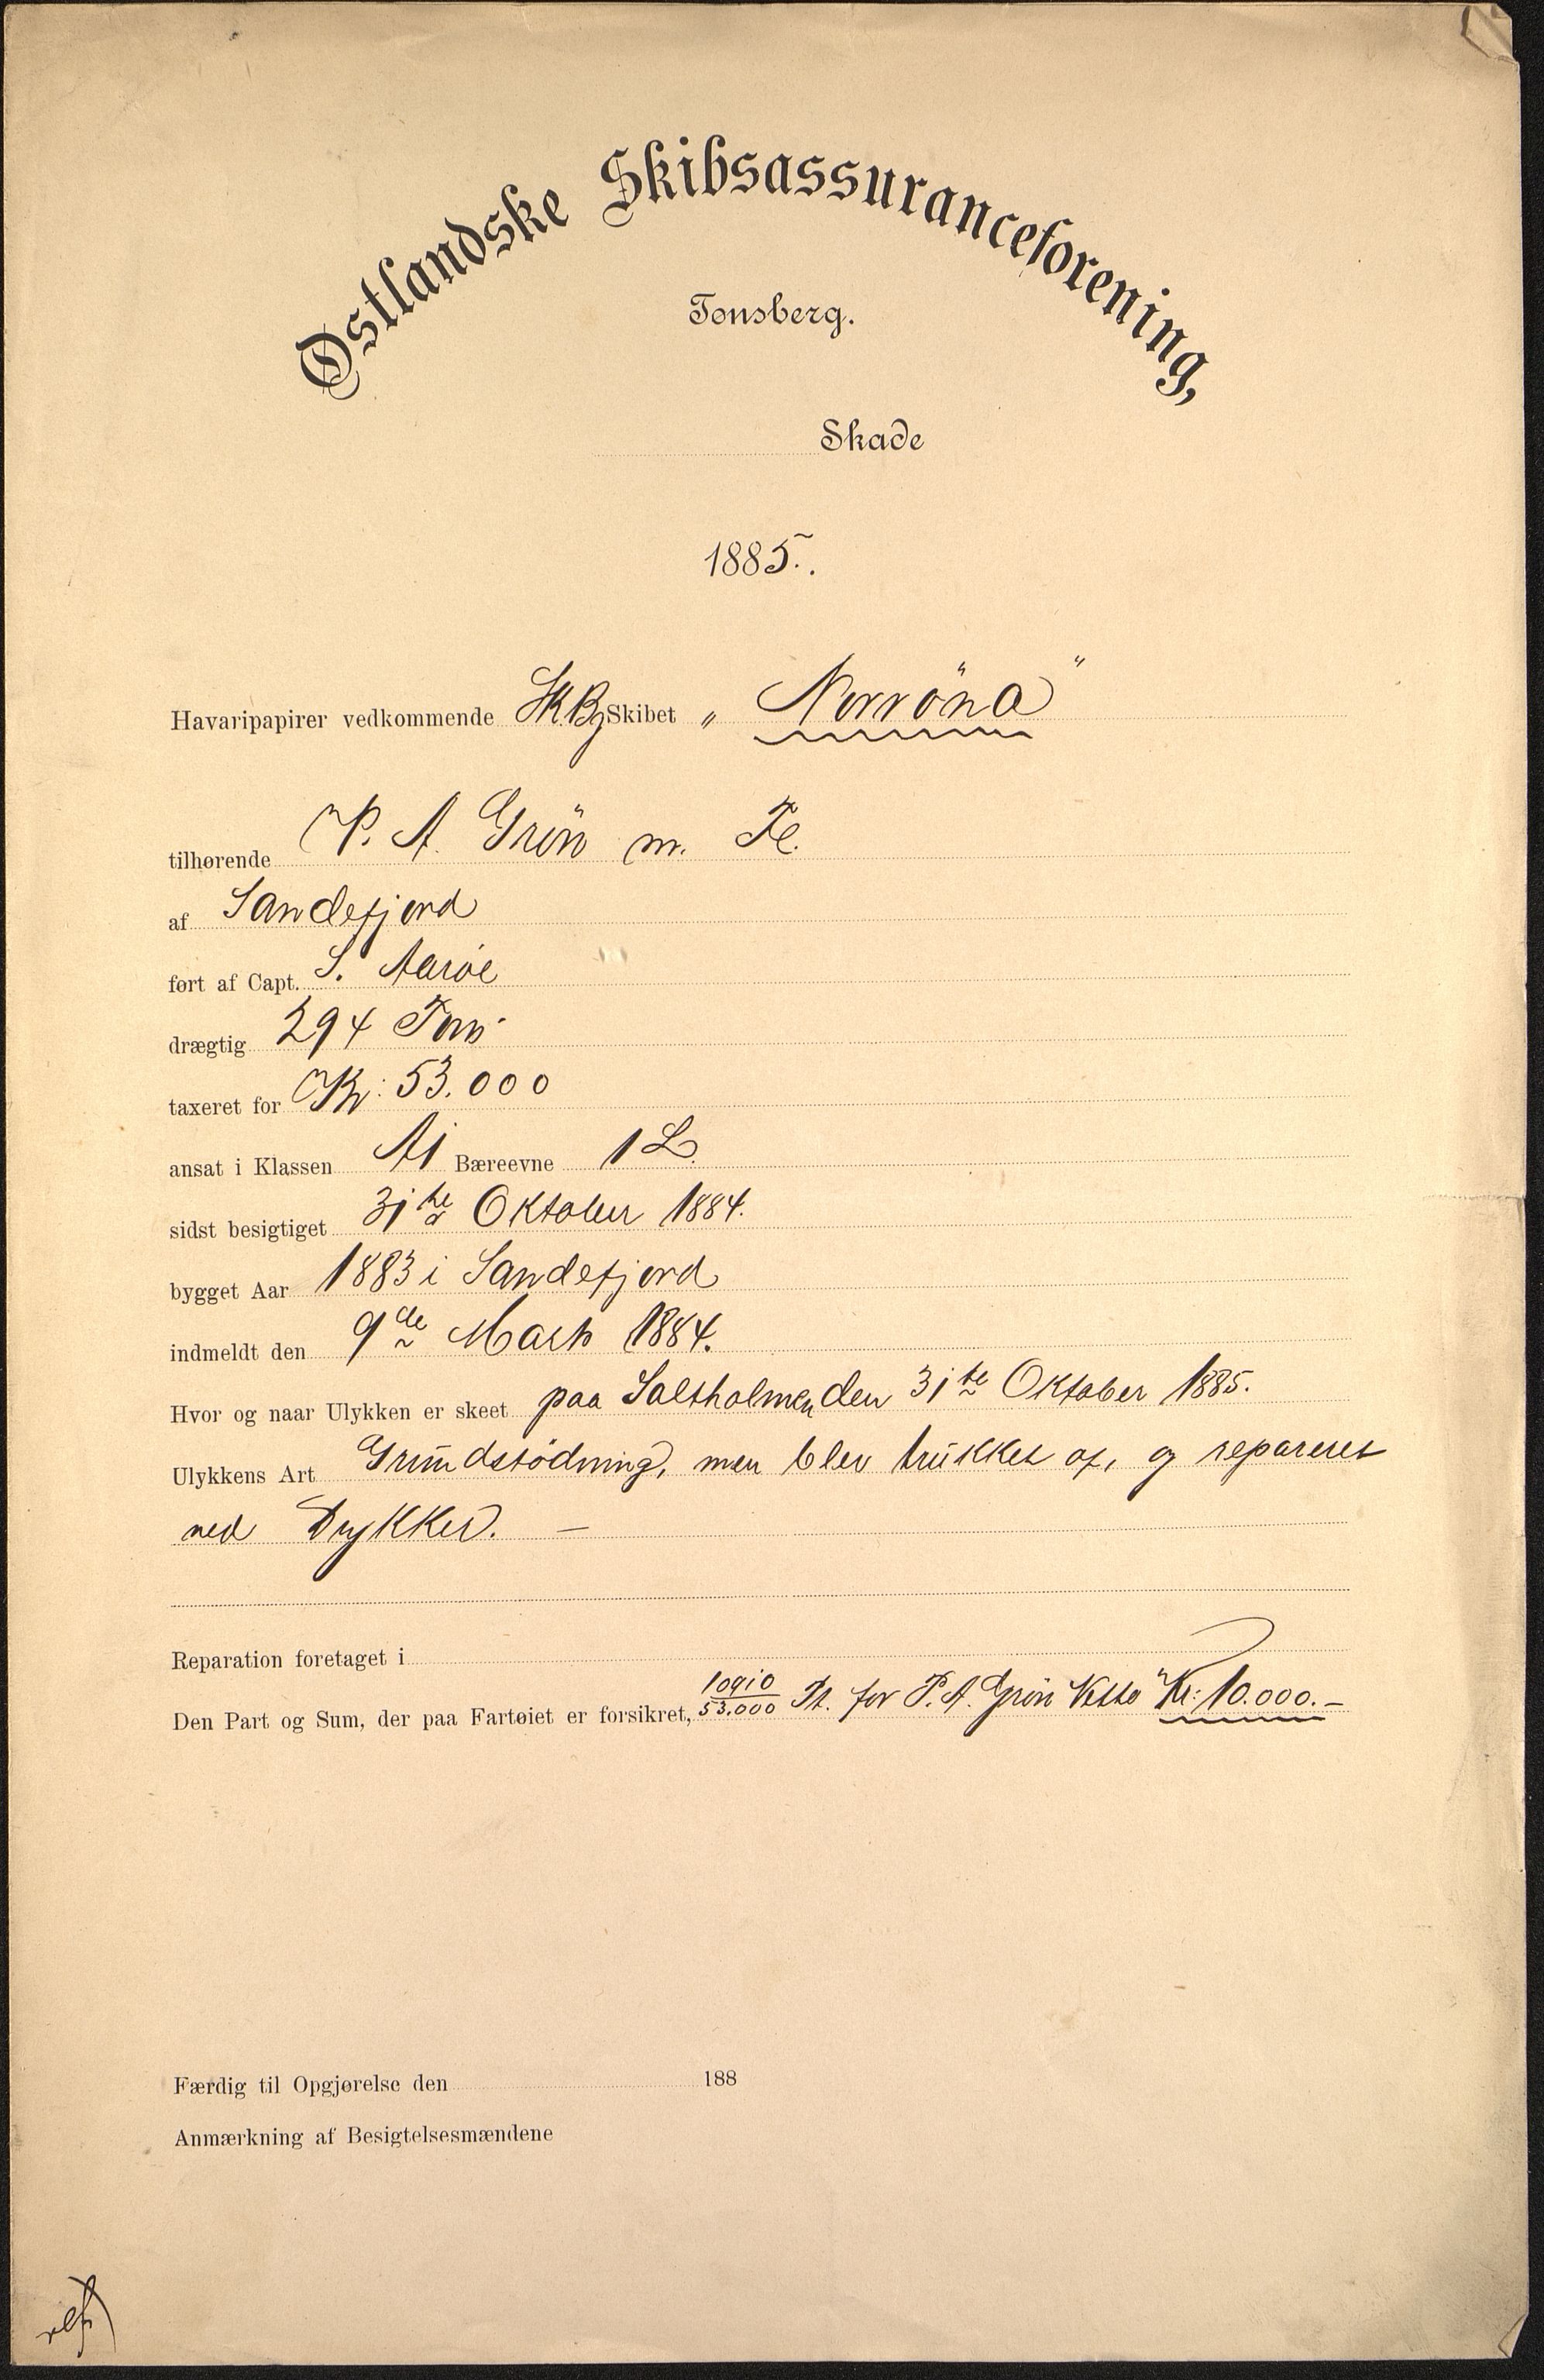 Østlandske Skibsassuranceforening,
Tønsberg.
Skade
1885.
Havaripapirer vedkommende Sk. Bg Skibet „ Norröna "
tilhørende P. A. Grön m. Fl.
af Sandefjord
ført af Capt. S. Aaröe
drægtig 294 Tons
taxeret for Kr: 53.000
ansat i Klassen A1 Bæreevne 1 L.
sidst besigtiget 31te Oktober 1884.
bygget Aar 1883 i Sandefjord
indmeldt den 9de Marts 1884.
Hvor og naar Ulykken er skeet paa Saltholmen den 31te Oktober 1885.
Ulykkens Art Grundstödning, men blev trukket af, og repareret
ved Dykker. —
Reparation foretaget i
Den Part og Sum, der paa Fartøiet er forsikret, 10910/53.000 Pt. for P. A. Grön Netto Kr: 10.000.–
Færdig til Opgjørelse den 188
Anmærkning af Besigtelsesmændene